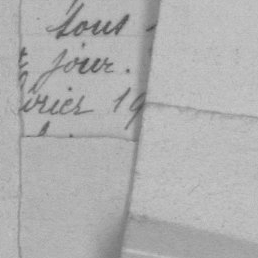 sous
t jour.
vrier 19